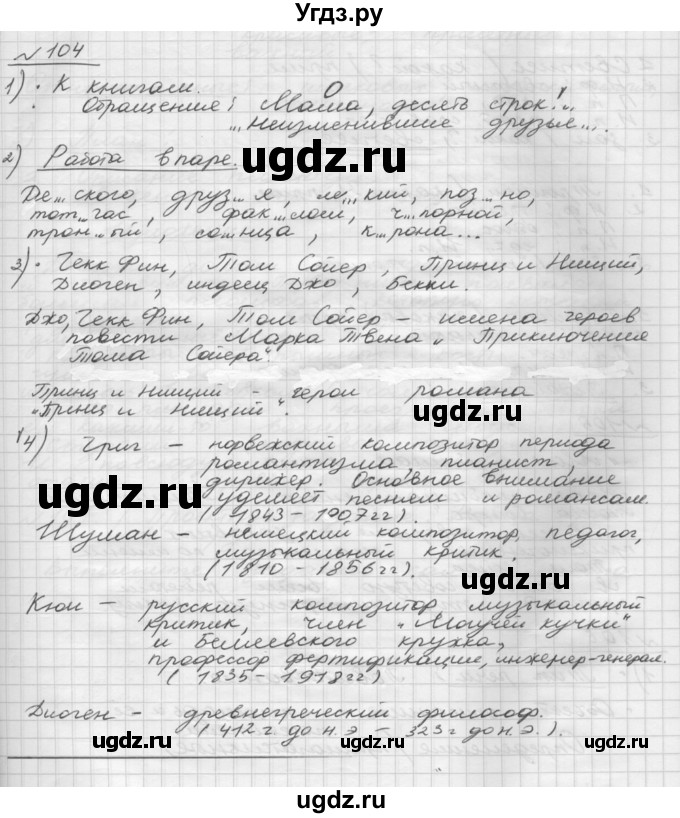 Угдз.ру
№ 104
1) · К книгам.
· Обращения: Мама, десять строк!",
"...Неизменившие друзья...".
2) Работа в паре.
Де...ского, друз...я, ле...кий, поз...но,
тот...час, фак...лоси, ч...порной,
тран...ый, со...ница, к...рона...
3) · Гекк Фин, Том Сойер, Принц и Нищий,
Диоген, индеец Джо, Бекки.
Джо, Гекк Фин, Том Сойер – имена героев
повести Марка Твена „Приключение
Тома Сойера".
Принц и Нищий – герои романа
„Принц и Нищий".
4) Григ – норвежский композитор периода
романтизма, пианист,
дирижер. Основное внимание
уделяет песням и романсам.
(1843 – 1907гг).
Шуман – немецкий композитор, педагог,
музыкальный критик.
(1810 – 1856гг).
Кюи – русский композитор музыкальный
критик, член „Могучей кучки"
и Беляевского кружка,
профессор фертификации, инженер-генерал.
(1835 – 1918гг)
Диоген – древнегреческий философ.
(412 г до н.э – 323 г до н.э.).
ugdz.ru
ugdz.ru
ugdz.ru
ugdz.ru
ugdz.ru
ugdz.ru
ugdz.ru
ugdz.ru
ugdz.ru